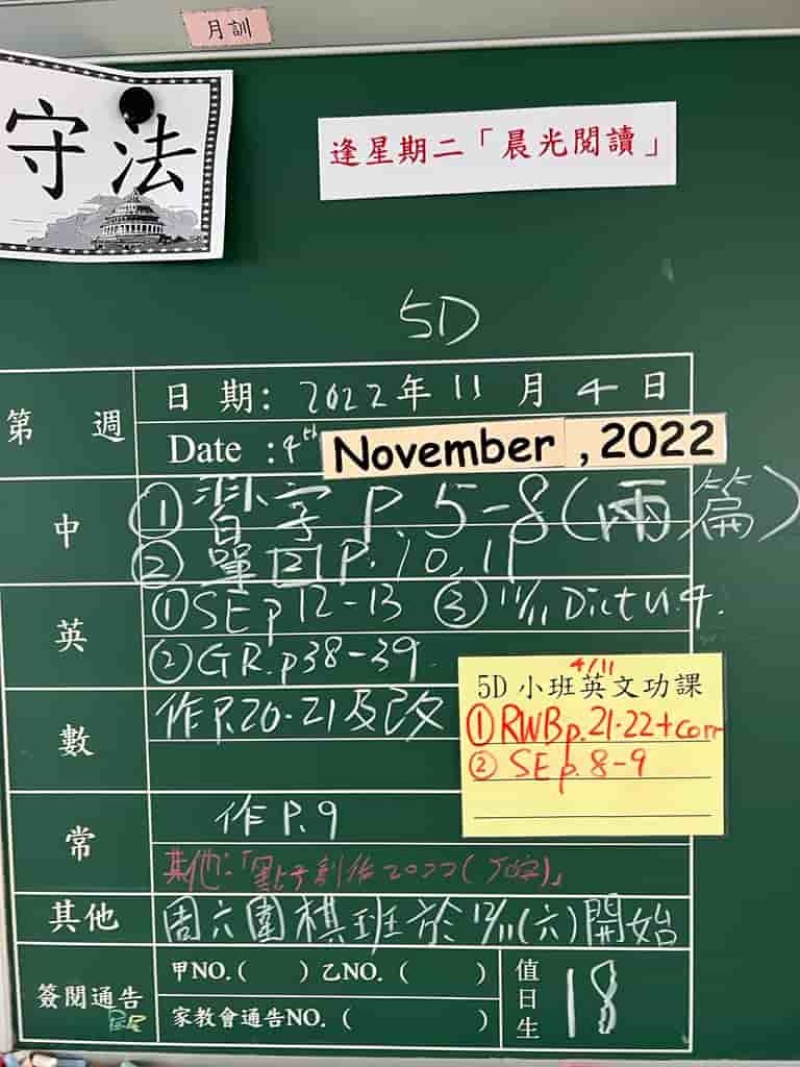 月訓
守法
逢星期二「晨光閱讀」
5D
第 週
日 期: 2022年 11 月 4 日
Date : 4th November , 2022
中
① 習字 P. 5-8 (兩篇)
② 單四 P. 10, 11
英
① SE p12-13 ③ 11/11 Dict u.4.
② GR. p38-39.
數
作 P.20-21 及改
4/11
5D 小班英文功課
① RWB p.21-22+corr
② SE p. 8-9
常
作 P. 9
其他:「點子創作2022
其他
周六圍棋班於 12/11(六)開始
簽閱通告
甲NO. ( ) 乙NO. ( )
家教會通告NO. ( )
值日生
18